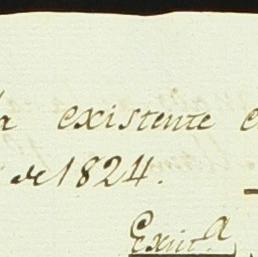 a existente e
de 1824.
Exist.ª